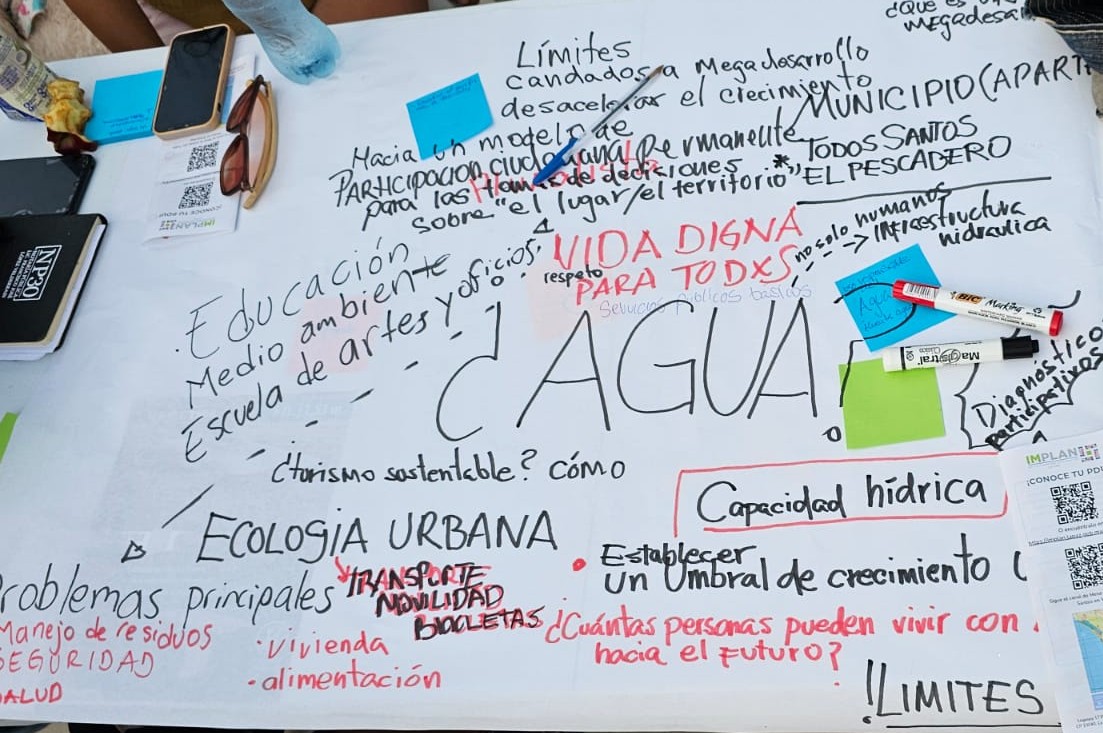 ¿QUE ES
MEGADESA
Límites
candados a Megadesarrollo
desacelerar el crecimiento
MUNICIPIO (APART
Hacia un modelo de
PARTICIPACION CIUDADANA PERMANENTE
para las tomas de decisiones
sobre "el lugar/el territorio"
* TODOS SANTOS
EL PESCADERO
VIDA DIGNA
PARA TODXS
respeto
Servicios públicos basicos
no solo humanos
--> infraestructura
hidraulica
Agua
Educación
Medio ambiente
Escuela de artes y oficios.
¿AGUA!
BIC Marking
Magistral
Diagnostico
participativos
NP30
IMPLAN
¡CONOCE TU PDU
¿turismo sostentable? cómo
Capacidad hídrica
ECOLOGIA URBANA
TRANSPORTE
MOVILIDAD
BICICLETAS
• Establecer
un Umbral de crecimiento (
roblemas principales
Manejo de residuos
SEGURIDAD
SALUD
• vivienda
• alimentación
¿Cuántas personas pueden vivir con
hacia el FUTURO?
!LIMITES